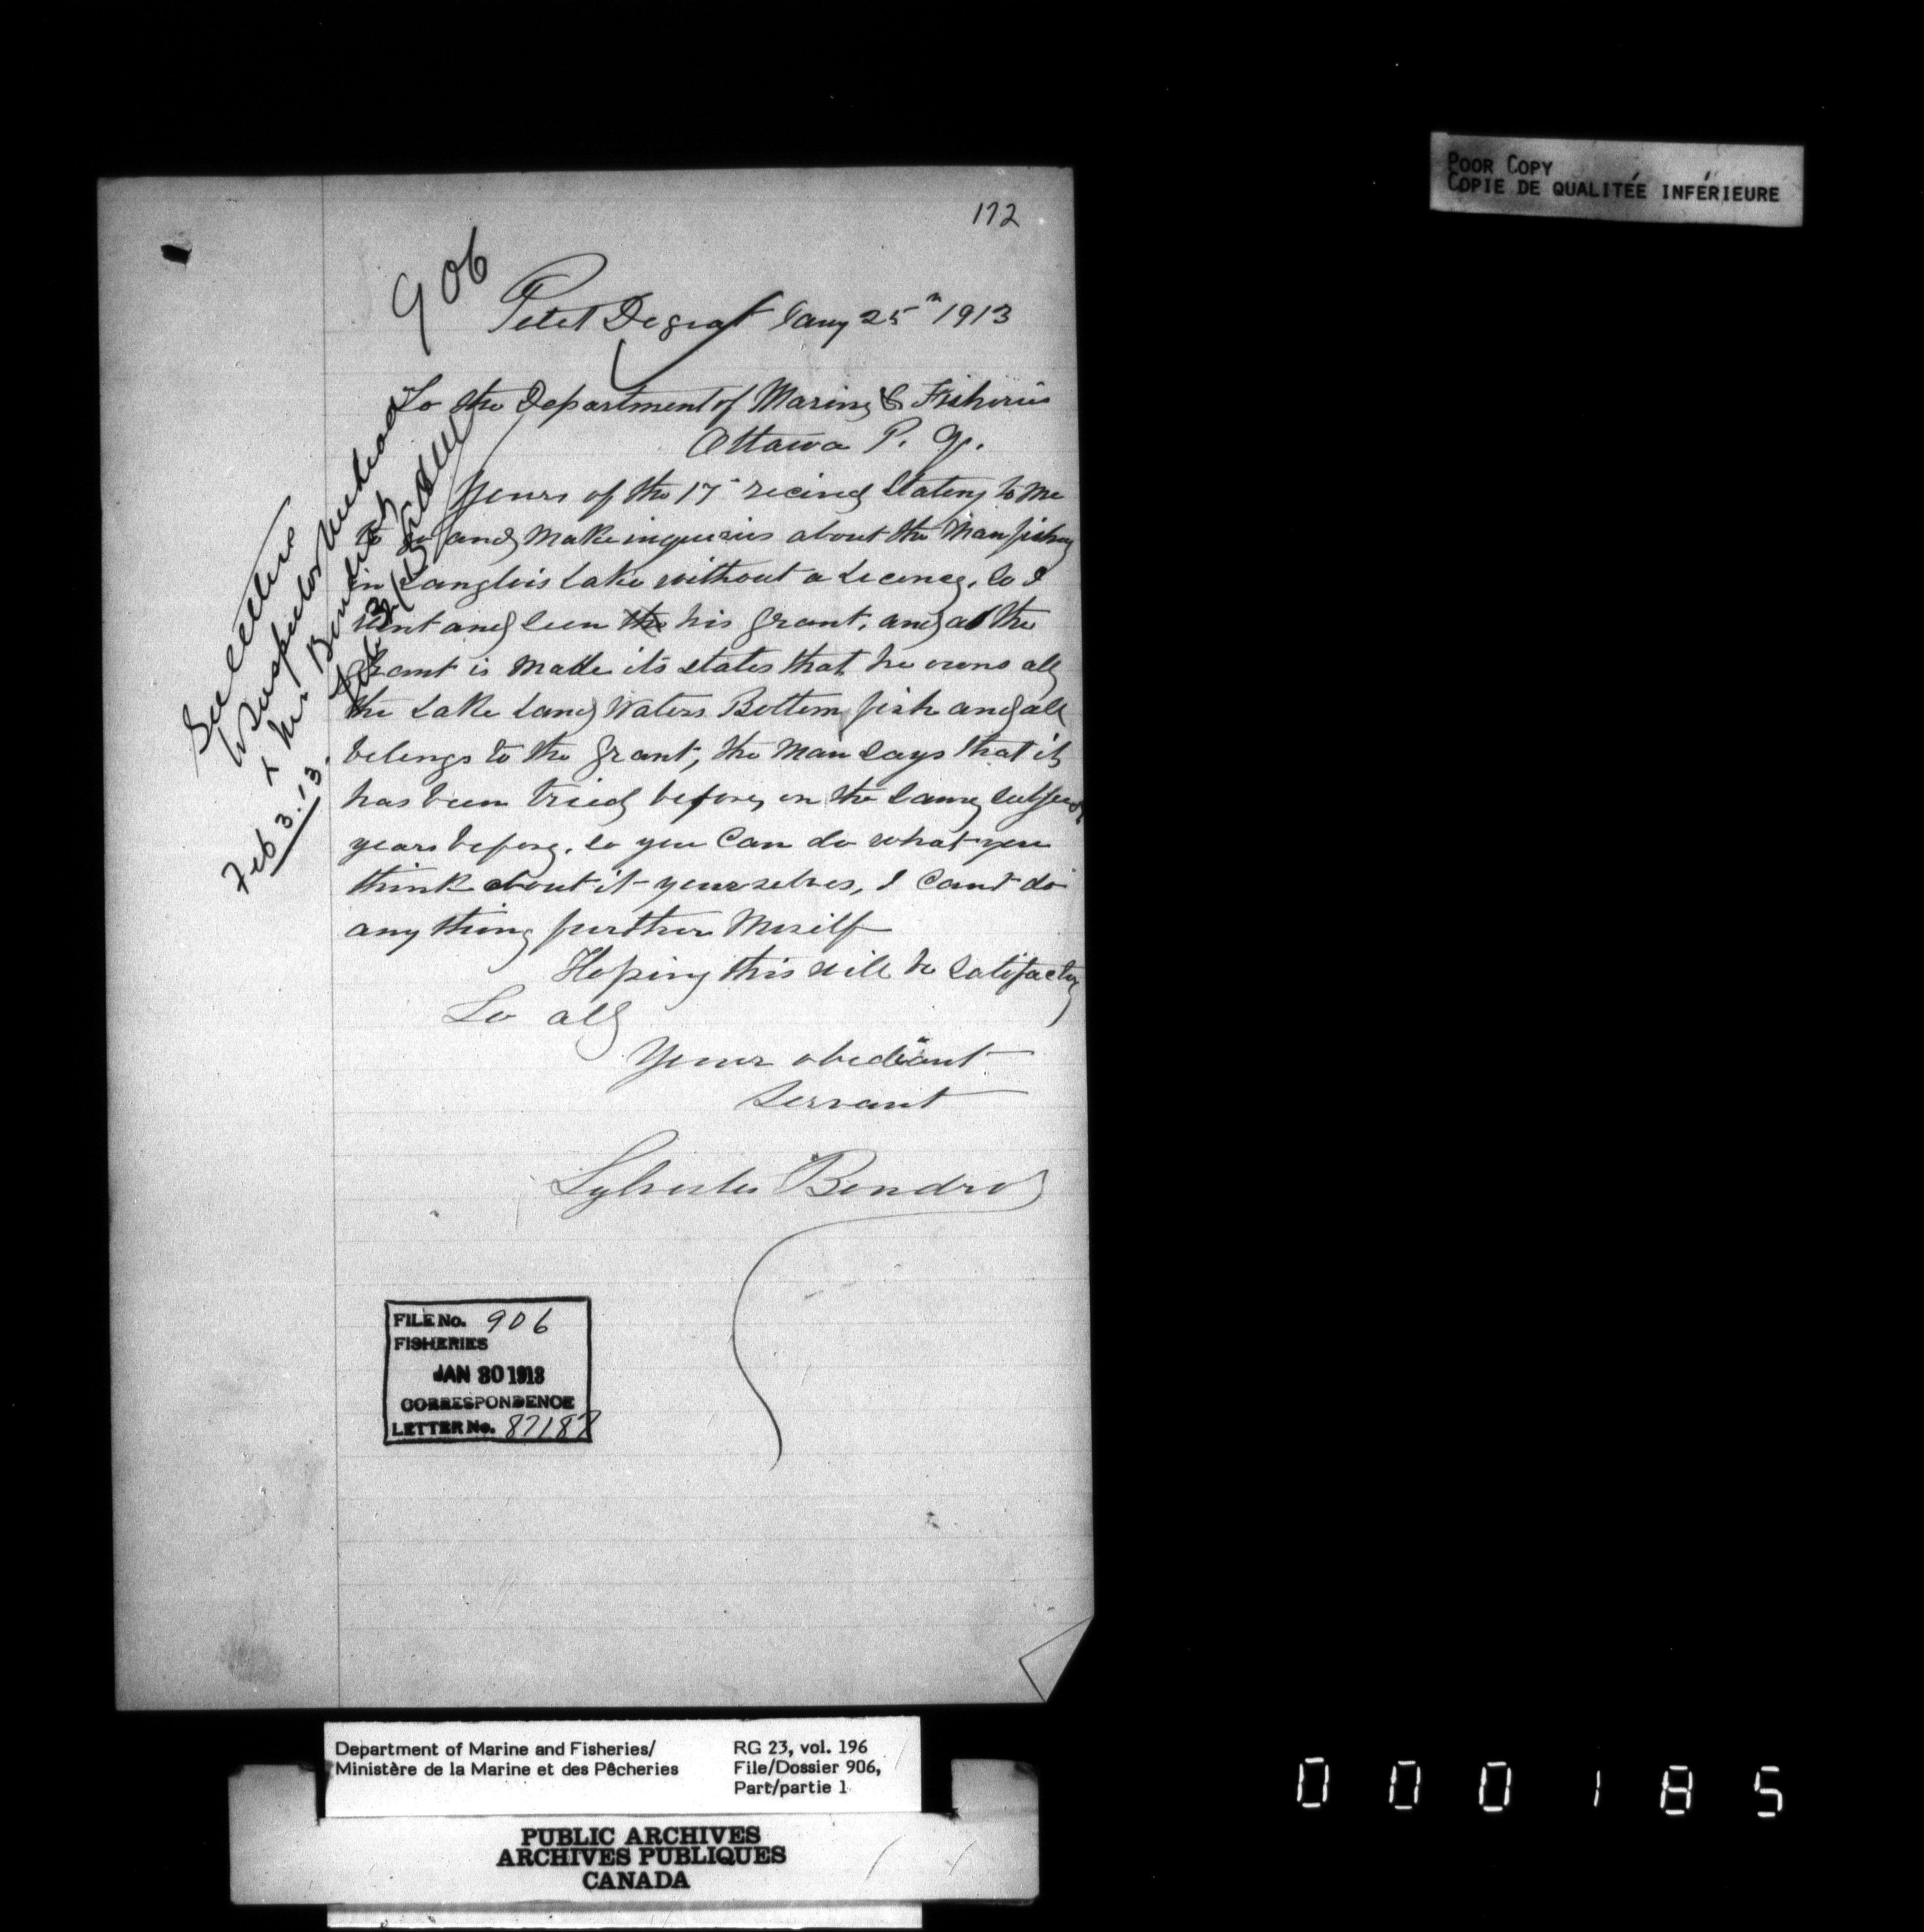 POOR COPY
COPIE DE QUALITÉE INFÉRIEURE
172
906
Petit Degrat Jany 25th 1913
To the Department of Marine & Fisheries
Ottawa P. Q.
Yours of the 17th recived stating to me
to go and make inqueries about the man fishing
in Langlois Lake without a licence, so I
went and seen the his grant, and as the
grant is made it's states that he owns all
the Lake Land Waters Bottom fish and all
belongs to the grant, the man says that it
has been tried before, on the same subject
years before, so you can do what you
think about it yourselves, I cant do
any thing further Meself
Hoping this will be satifactory
To all
Your obediant
Servant
Sylvester Bondro
See letters
to Inspector
& Mr. Boudrot
Feb 3. 13.
FILE No. 906
FISHERIES
JAN 30 1913
CORRESPONDENCE
LETTER No. 87187
Department of Marine and Fisheries/
Ministère de la Marine et des Pêcheries
RG 23, vol. 196
File/Dossier 906,
Part/partie 1
PUBLIC ARCHIVES
ARCHIVES PUBLIQUES
CANADA
000185